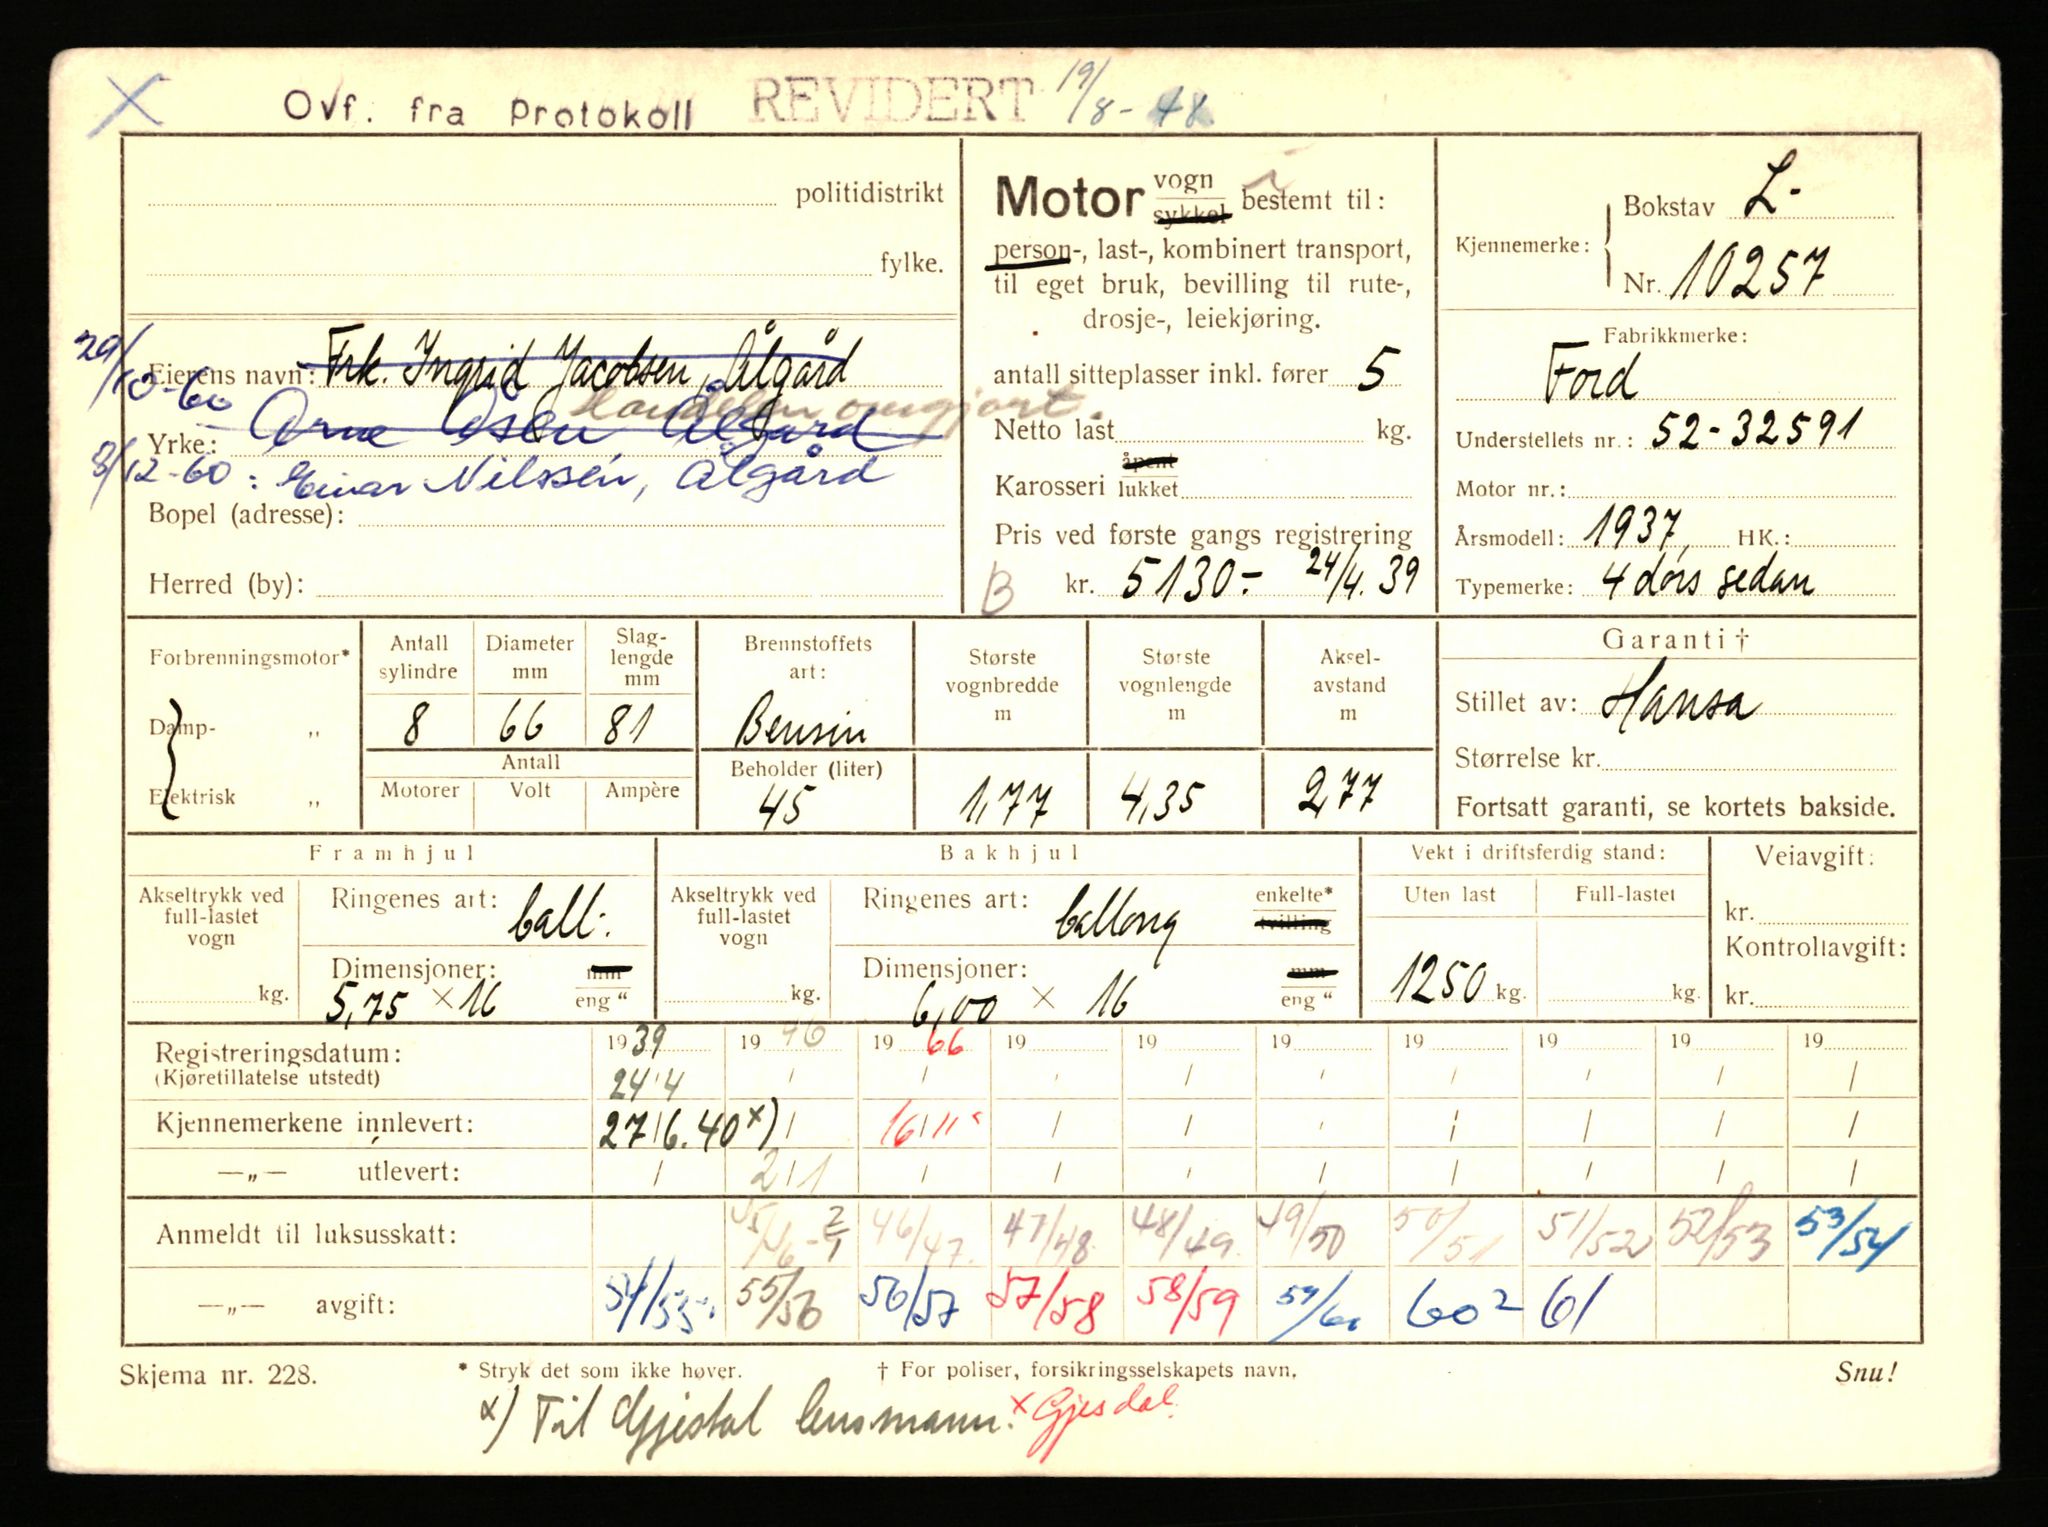 Ovf. fra Protokoll REVIDERT 19/8-48
politidistrikt
fylke.
29/10-60
Eierens navn: Frk. Ingrid Jacobsen, Ålgård
Handelen omgjort.
Arne Åsen Ålgård
Yrke:
8/12-60: Einar Nilssen, Ålgård
Bopel (adresse):
Herred (by):
Motor vogn
sykkel bestemt til:
person-, last-, kombinert transport,
til eget bruk, bevilling til rute-,
drosje-, leiekjøring.
antall sitteplasser inkl. fører 5
Netto last kg.
Karosseri åpent
lukket
Pris ved første gangs registrering
B kr. 5130.- 24/4.39
Kjennemerke: Bokstav L-
Nr. 10257
Fabrikkmerke:
Ford
Understellets nr.: 52-32591
Motor nr.:
Årsmodell: 1937, HK.:
Typemerke: 4 dørs sedan
Forbrenningsmotor*
Damp- „
Elektrisk „
Antall sylindre 8
Diameter mm 66
Slag-lengde mm 81
Antall
Motorer Volt Ampère
Brennstoffets art: Bensin
Beholder (liter) 45
Største vognbredde m 1,77
Største vognlengde m 4,35
Aksel-avstand m 2,77
Garanti †
Stillet av: Hansa
Størrelse kr.
Fortsatt garanti, se kortets bakside.
Framhjul
Akseltrykk ved full-lastet vogn kg.
Ringenes art: ball.
Dimensjoner: mm
5,75 × 16 eng "
Bakhjul
Akseltrykk ved full-lastet vogn kg.
Ringenes art: ballong enkelte*
tvilling
Dimensjoner: mm
6,00 × 16 eng "
Vekt i driftsferdig stand:
Uten last Full-lastet
1250 kg. kg.
Veiavgift:
kr.
Kontrollavgift:
kr.
Registreringsdatum: 1939 1946 1966 19 19 19 19 19 19 19
(Kjøretillatelse utstedt) 24/4
Kjennemerkene innlevert: 27/6.40 x) 16/11
—„— utlevert: 2/1
Anmeldt til luksusskatt: 45/46-2/1 46/47. 47/48. 48/49. 49/50 50/51 51/52 52/53 53/54
—„— avgift: 54/55 55/56 56/57 57/58 58/59 59/60 60² 61
Skjema nr. 228. * Stryk det som ikke høver. † For poliser, forsikringsselskapets navn. Snu!
x) Til Gjestal lensmann. x Gjesdal.